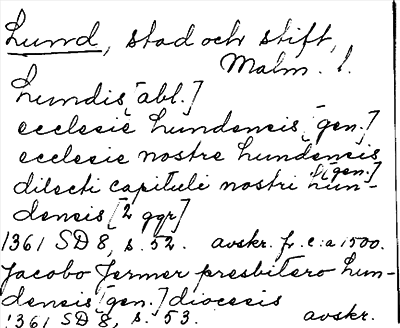 Lund, stad och stift,
Malm. l.
Lundis [abl.]
ecclesie Lundensis [gen.]
ecclesie nostre Lundensis
[gen.]
dilecti capituli nostri Lun-
densis [2 ggr]
1361 SD 8, s. 52. avskr. fr. c:a 1500.
Jacobo Fermer presbitero Lun-
densis [gen.] diocesis
1361 SD 8, s. 53. avskr.